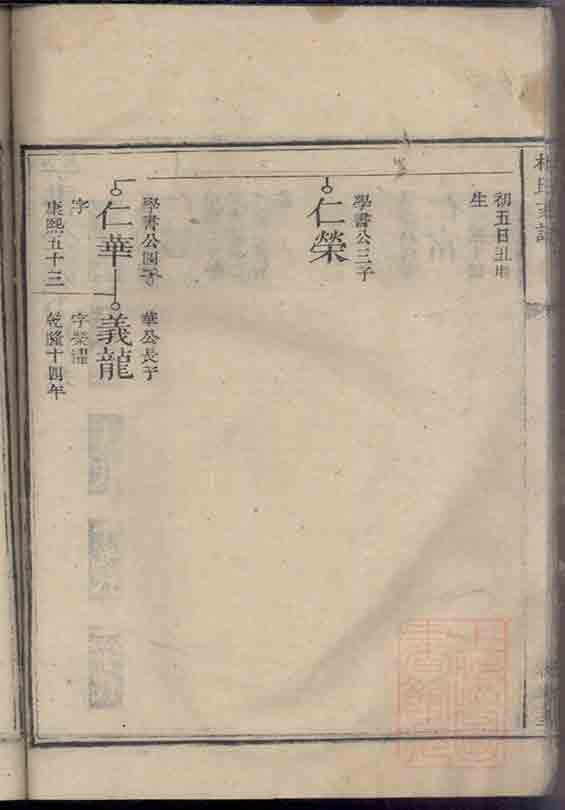 初五日丑時
生
學書公三子
仁榮
學書公四子
仁華
字
康熙五十三
華公長子
義龍
字榮
乾隆十四年